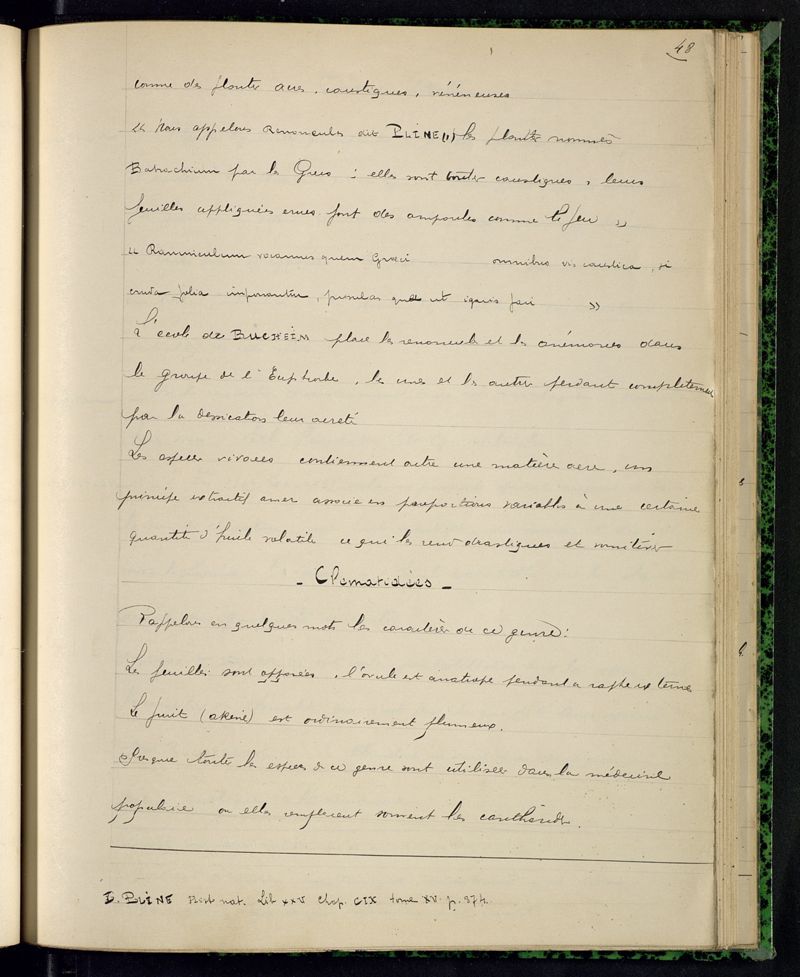 48
comme des plantes acres, caustiques, vénéneuses
« Nous appelons Renoncules dit PLINE (1) les plantes nommés
Batrachium par les Grecs : elles sont toutes caustiques, leurs
feuilles appliquées crues font des ampoules comme le feu »
« Ranunculum vocamus quem Graeci omnibus vis caustica, si
cruda folia imponantur, pusulas que ut ignis fari »
L'école de BUCHEIM place les renoncules et les anémones dans
le groupe de l'Euphorbe, les unes et les autres perdant complètement
par la dessication leur acreté
Les espèces vivaces contiennent outre une matière acre, un
principe extractif amer associé en proportions variables à une certaine
quantité d'huile volatile ce qui les rend drastiques et vomitives
- Clematidées -
Rappelons en quelques mots les caractères de ce genre :
Les feuilles sont opposées, l'ovule est anatrope pendant a raphe externe
Le fruit (akène) est ordinairement plumeux.
Presque toutes les espèces de ce genre sont utilisées dans la médecine
populaire où elles remplacent souvent les cantharides.
1. PLINE Hist nat. Lib XXV Chap. CIX tome XV p. 374.